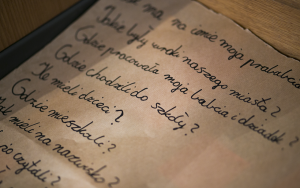 ma na imię moja prababcia
Jakie były uroki naszego miasta?
Gdzie pracowała moja babcia i dziadek?
Gdzie chodzili do szkoły?
Ile mieli dzieci?
Gdzie mieszkali?
mieli na nazwisko?
czytali?